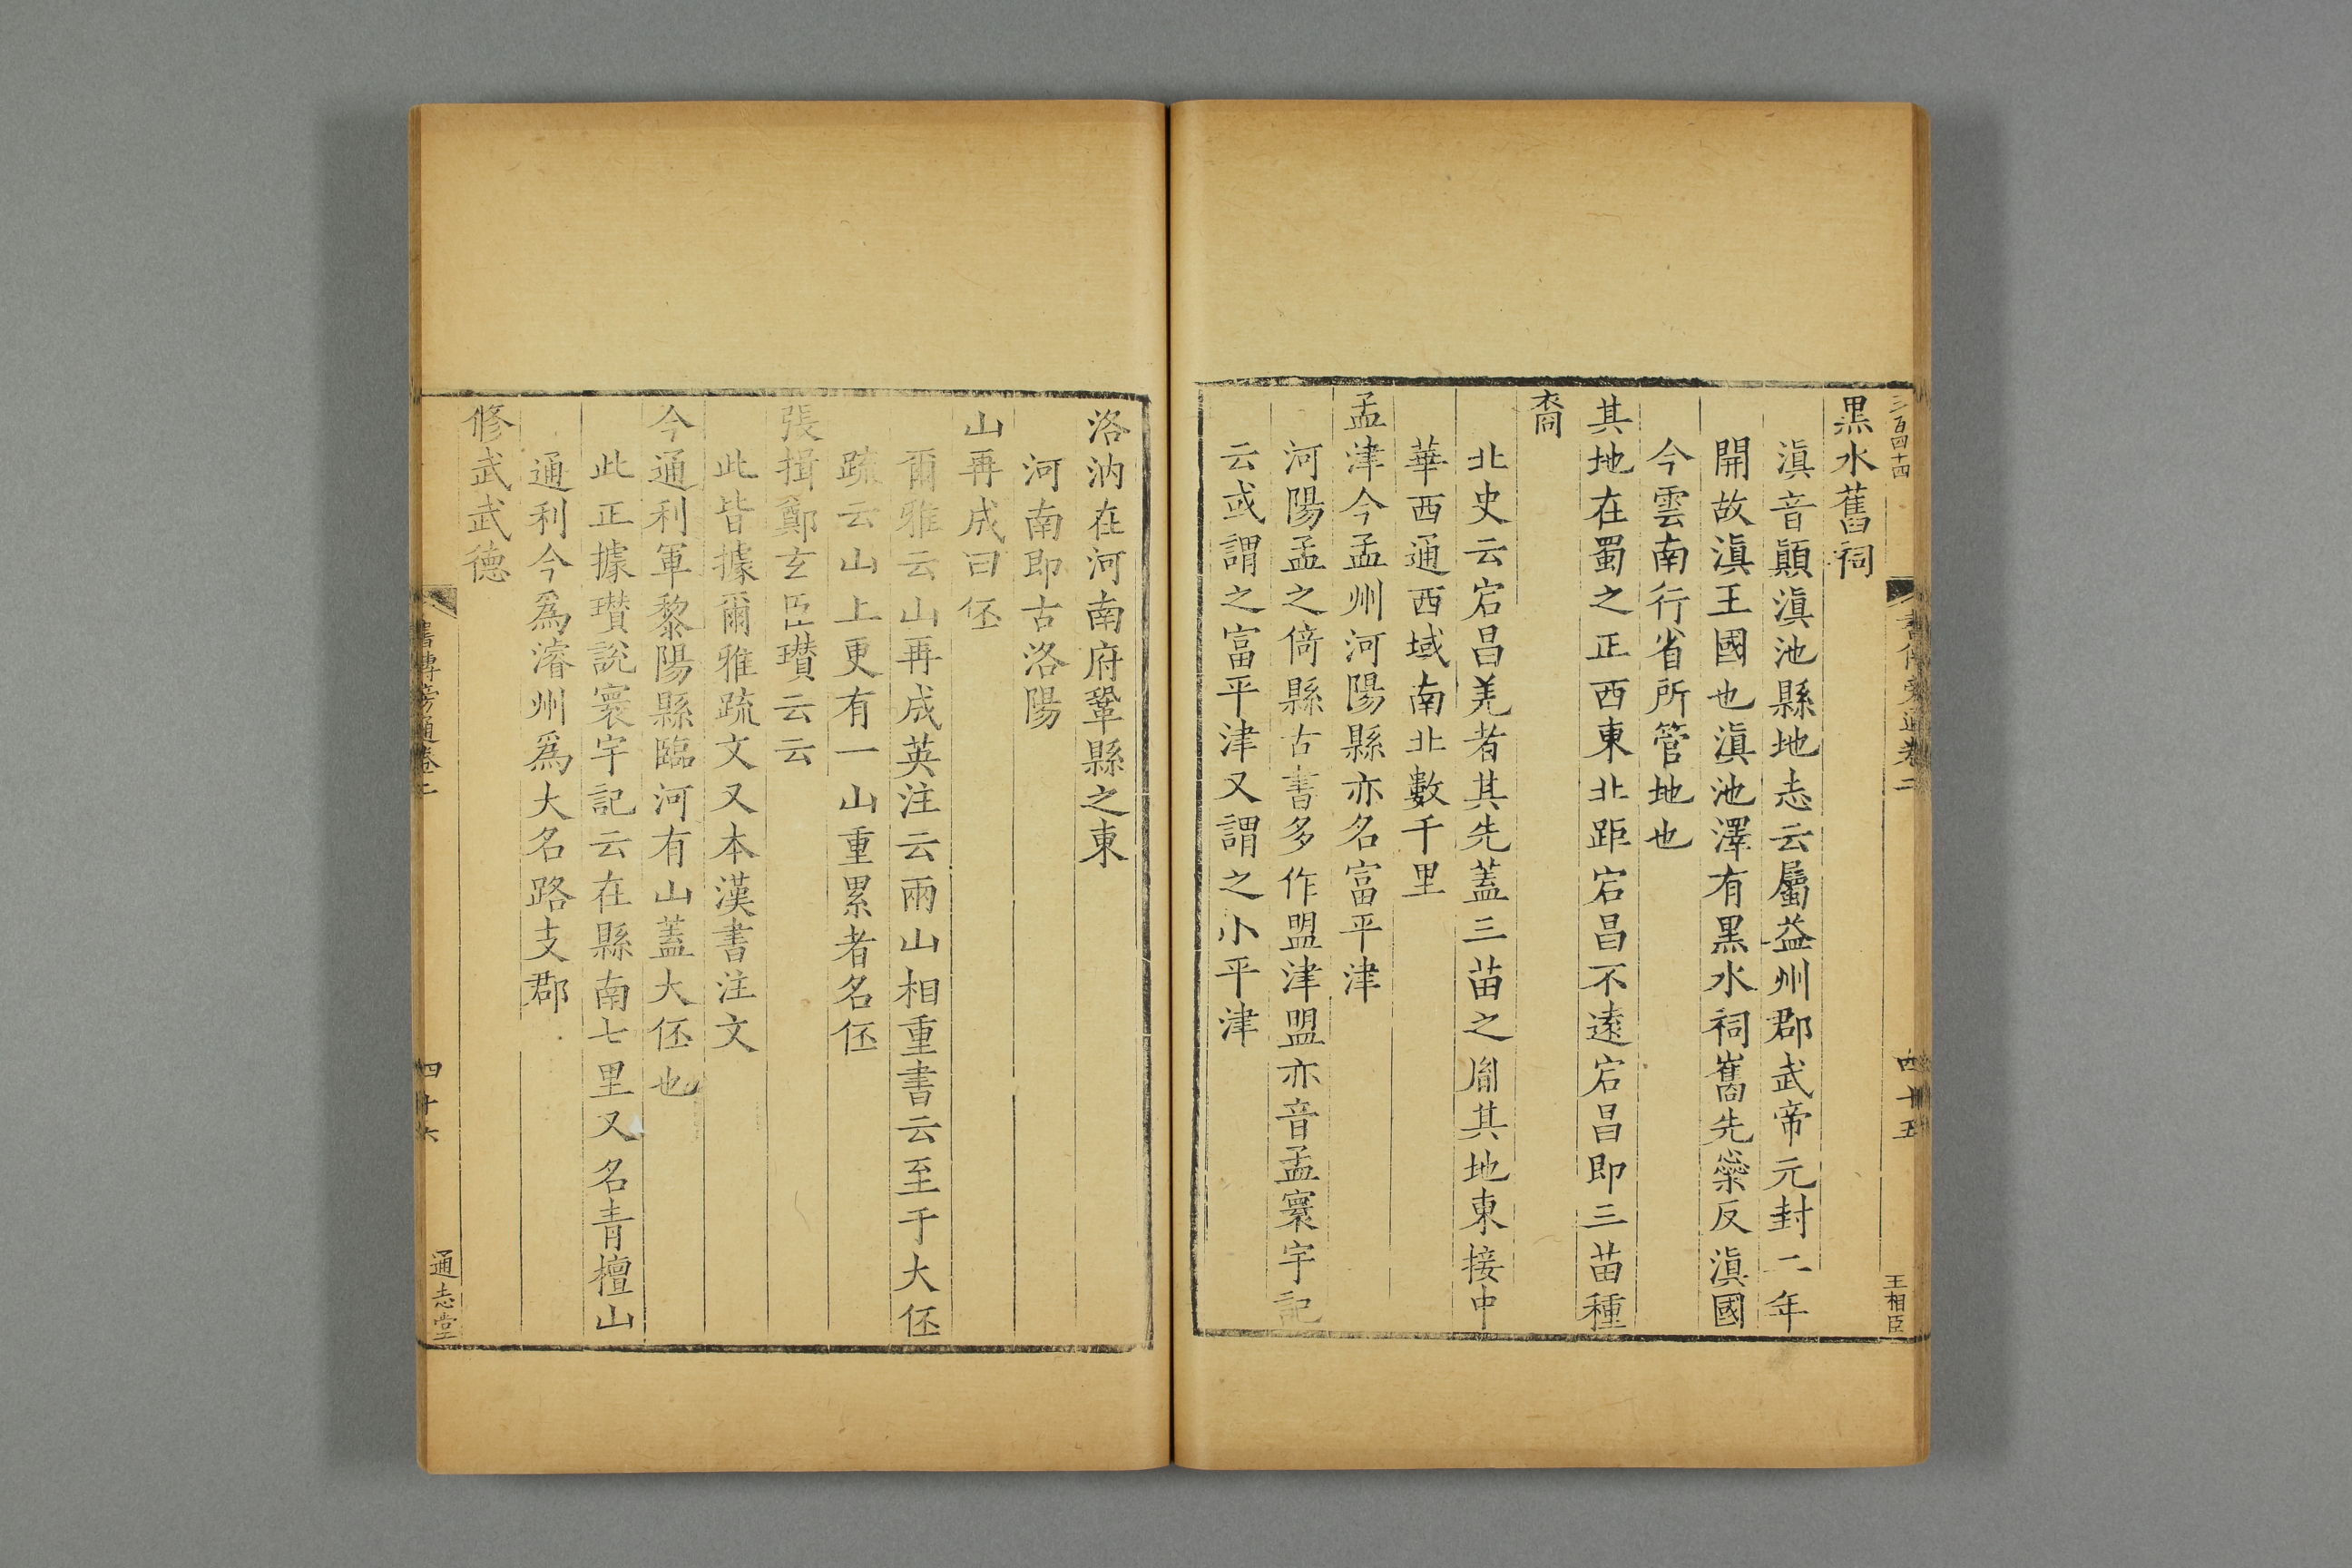 三百四十四
書傳旁通卷二
四十五
王相臣
黒水舊祠
滇音顛滇池縣地志云屬益州郡武帝元封二年
開故滇王國也滇池澤有黒水祠嶲先槃反滇國
今雲南行省所管地也
其地在蜀之正西東北距宕昌不遠宕昌即三苗種
裔
北史云宕昌羌者其先蓋三苗之胤其地東接中
華西通西域南北數千里
孟津今孟州河陽縣亦名富平津
河陽孟之倚縣古書多作盟津盟亦音孟寰宇記
云或謂之富平津又謂之小平津
洛汭在河南府鞏縣之東
河南即古洛陽
山再成曰伾
爾雅云山再成英注云兩山相重書云至于大伾
疏云山上更有一山重累者名伾
張揖鄭玄臣瓚云云
此皆據爾雅疏文又本漢書注文
今通利軍黎陽縣臨河有山蓋大伾也
此正據瓚說寰宇記云在縣南七里又名青檀山
通利今爲濬州爲大名路支郡
修武武德
書傳旁通卷二
四十六
通志堂